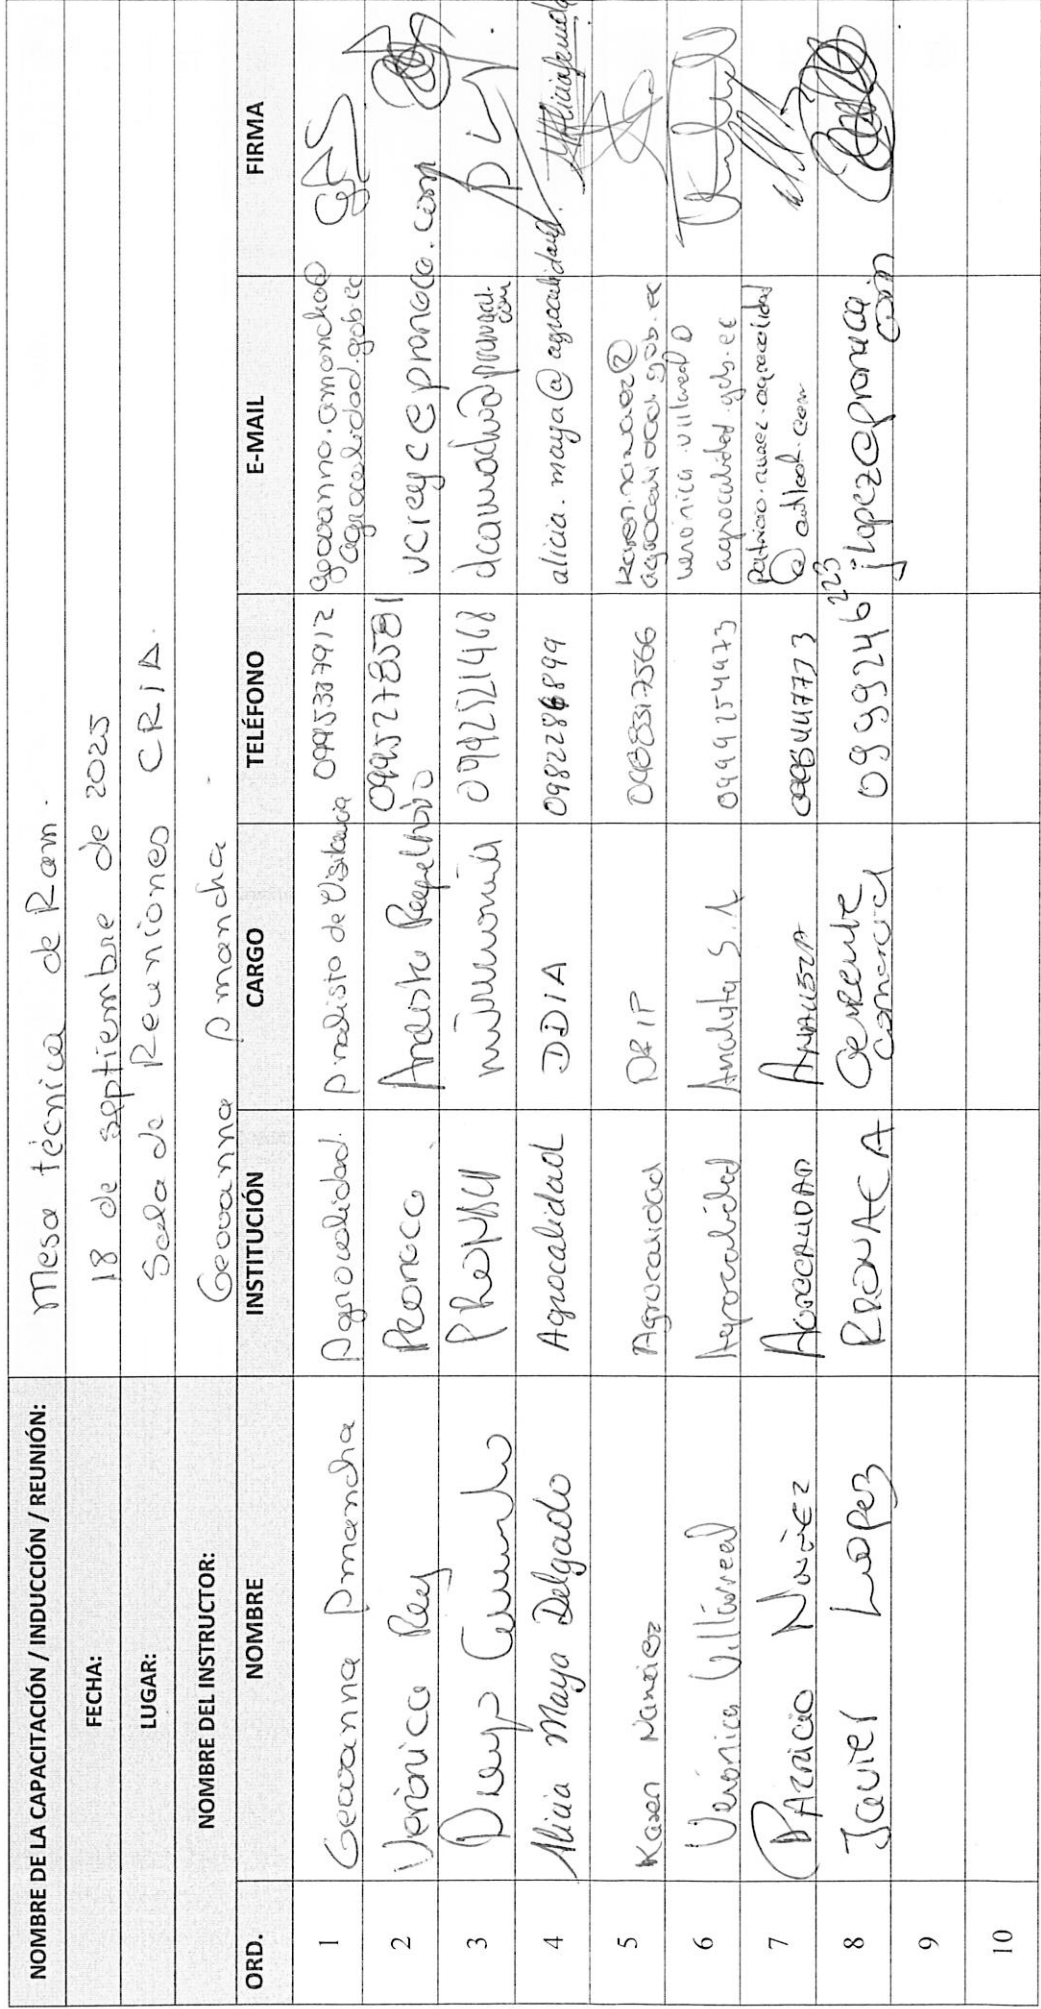 NOMBRE DE LA CAPACITACIÓN / INDUCCIÓN / REUNIÓN: Mesa técnica de Ram.
FECHA: 18 de septiembre de 2025
LUGAR: Sala de Reuniones CRIA.
NOMBRE DEL INSTRUCTOR: Geovanna Amancha
ORD. NOMBRE INSTITUCIÓN CARGO TELÉFONO E-MAIL FIRMA
1 Geovanna Amancha Agrocalidad. Analista de Vigilancia 0995387912 geovanna.amancha@
agrocalidad.gob.ec
2 Verónica Rey Pronaca. Analista 0995278581 vcrey@pronaca.com
3 Diego Camacho PRONACA 0992521468
4 Alicia Maya Delgado Agrocalidad DDIA 0982286899 alicia.maya@agrocalidad.
5 Karen Narváez Agrocalidad DRIP 0983317566 karen.narvaez@
agrocalidad.gob.ec
6 Verónica Villarreal Agrocalidad Analista S.A 0999254973 veronica.villarreal@
agrocalidad.gob.ec
7 PATRICIO NUÑEZ AGROCALIDAD ANALISTA patricio.nunez.agrocalidad
@outlook.com
8 Javier Lopez PRONACA Gerente
Comercial 0999246223 jlopez@pronaca.
com
9
10